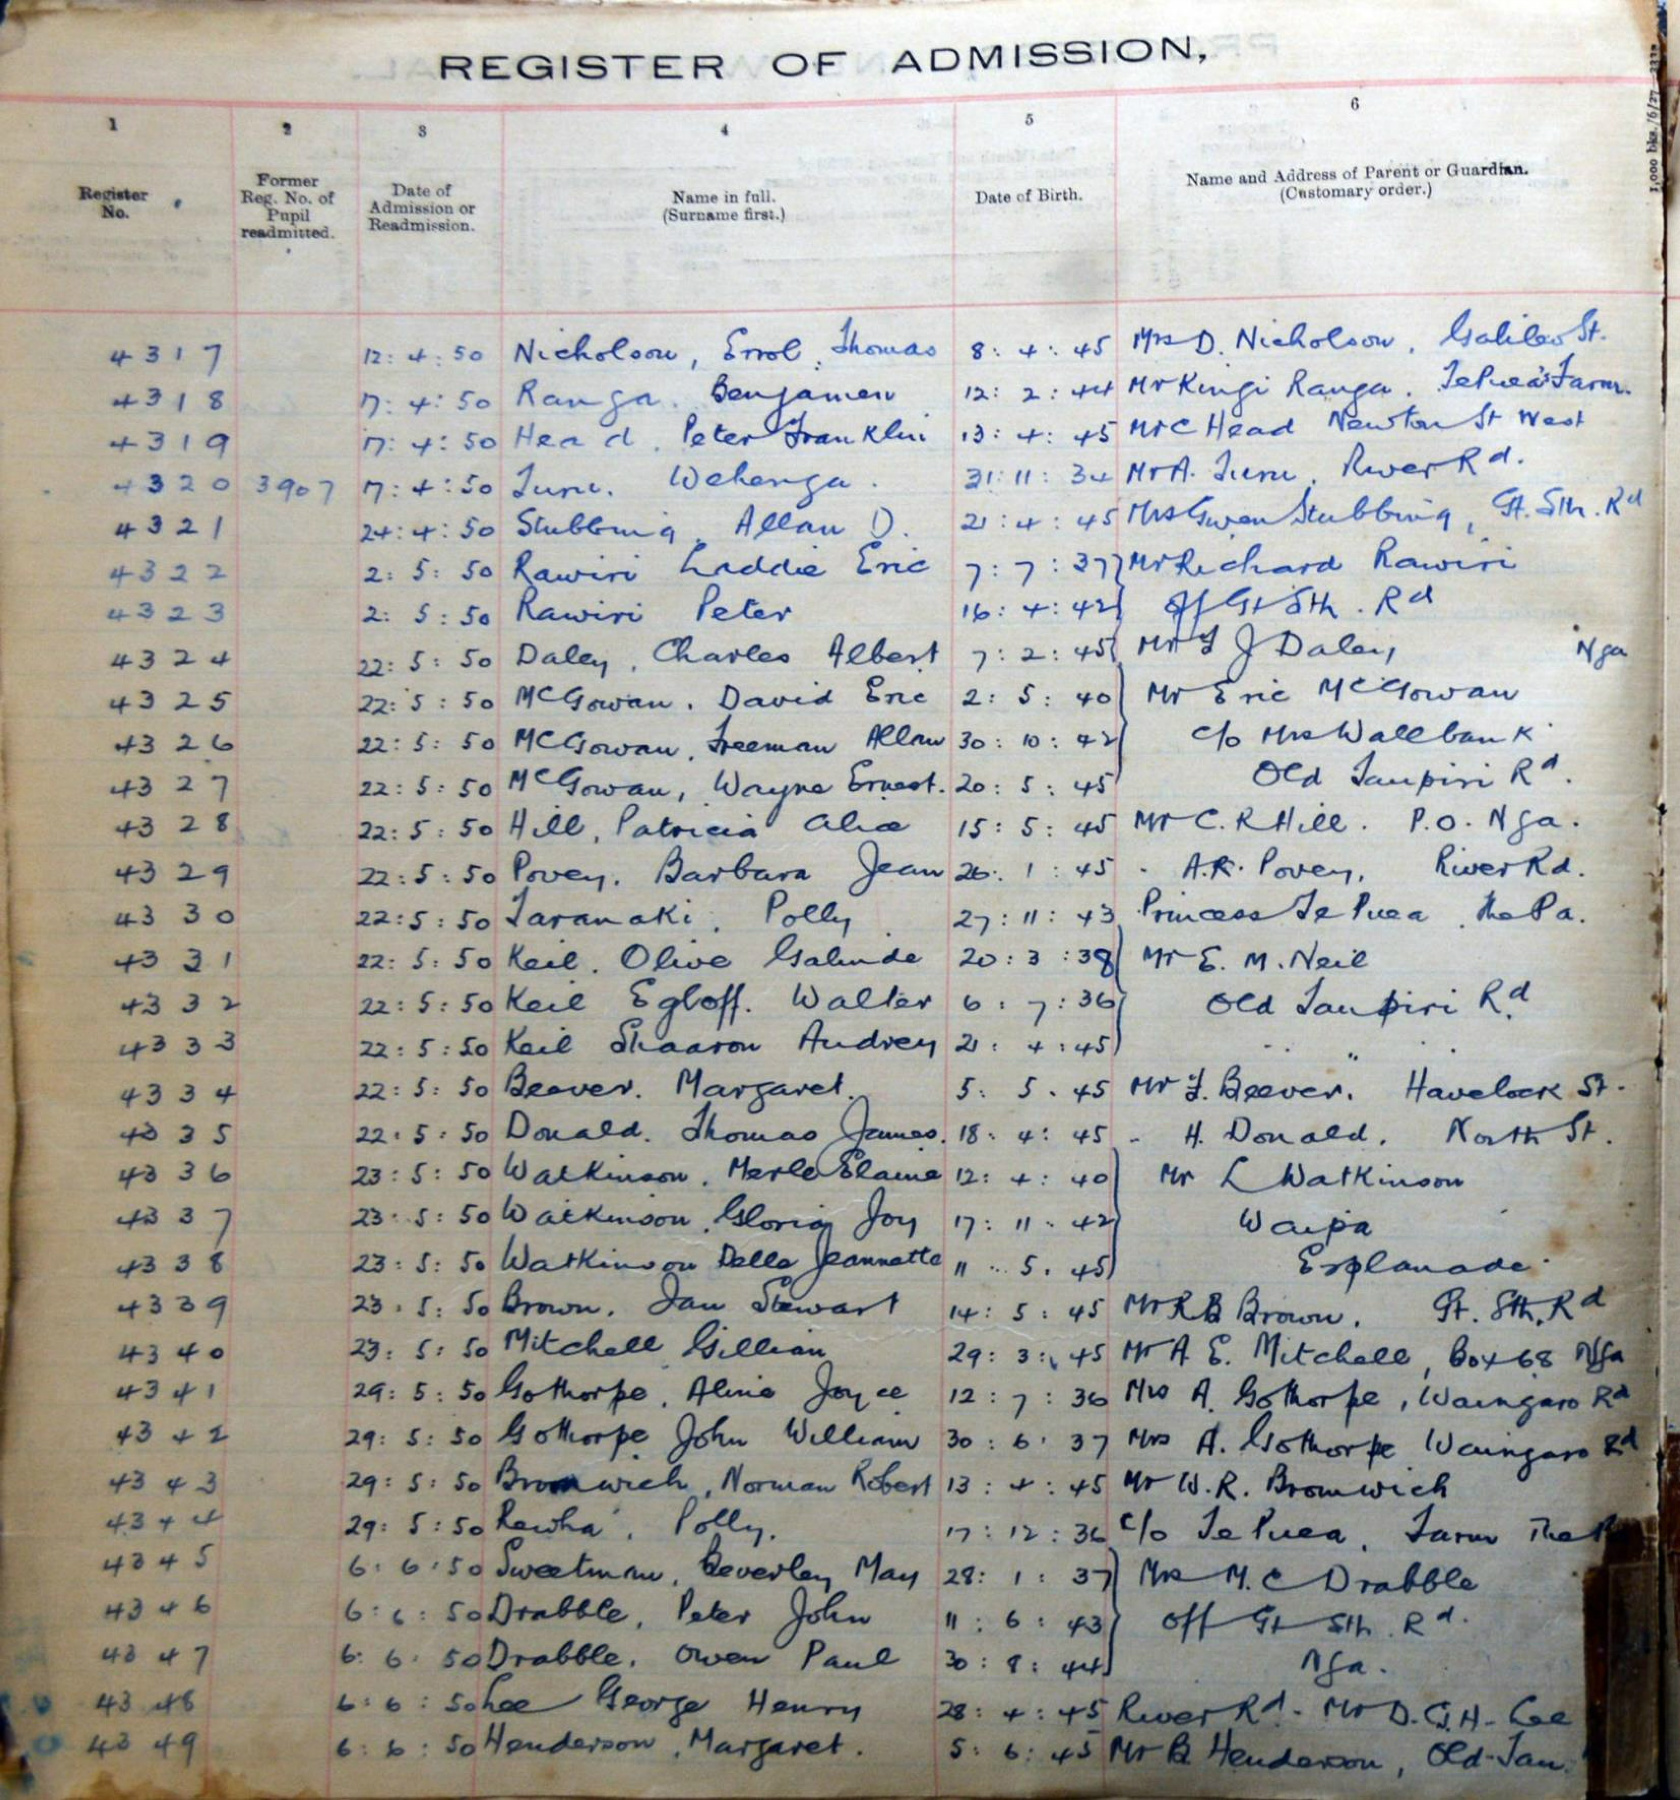 REGISTER OF ADMISSION,
1 2 3 4 5 6
Register No. Former Reg. No. of Pupil readmitted. Date of Admission or Readmission. Name in full. (Surname first.) Date of Birth. Name and Address of Parent or Guardian. (Customary order.)
1,000 bks./6/27
4317 12:4:50 Nicholson, Errol Thomas 8:4:45 Mrs D. Nicholson, Galileo St.
4318 17:4:50 Ranga. Benjamen 12:2:44 Mr Kingi Ranga. Te Puea's Farm.
4319 17:4:50 Head. Peter Franklin 13:4:45 Mr C Head Newton St West
4320 3907 17:4:50 Turu. Wehenga. 31:11:34 Mr A. Turu. River Rd.
4321 24:4:50 Stubbing. Allan D. 21:4:45 Mrs Gwen Stubbing, Gt. Sth. Rd
4322 2:5:50 Rawiri Laddie Eric 7:7:37 Mr Richard Rawiri
4323 2:5:50 Rawiri Peter 16:4:42 off Gt Sth. Rd
4324 22:5:50 Daley, Charles Albert 7:2:45 Mr J Daley Nga
4325 22:5:50 McGowan. David Eric 2:5:40 Mr Eric McGowan
4326 22:5:50 McGowan. Freeman Allan 30:10:42 c/o Mrs Wallbank
4327 22:5:50 McGowan, Wayne Ernest. 20:5:45 Old Taupiri Rd.
4328 22:5:50 Hill, Patricia Alice 15:5:45 Mr C. R Hill. P.O. Nga.
4329 22:5:50 Povey. Barbara Jean 26:1:45 - A.R. Povey, River Rd.
4330 22:5:50 Taranaki, Polly 27:11:43 Princess Te Puea. The Pa.
4331 22:5:50 Keil. Olive Galinda 20:3:38 Mr E. M. Neil
4332 22:5:50 Keil Egloff. Walter 6:7:36 Old Taupiri Rd
4333 22:5:50 Keil Shaaron Audrey 21:4:45 " "
4334 22:5:50 Beever. Margaret. 5:5.45 Mr F. Beever. Havelock St.
4335 22:5:50 Donald. Thomas James. 18:4:45 - H. Donald. North St.
4336 23:5:50 Watkinson. Merle Elaine 12:4:40 Mr L Watkinson
4337 23:5:50 Watkinson. Gloria Joy 17:11:42 Waipa
4338 23:5:50 Watkinson Della Jeannette 11.5.45 Esplanade
4339 23:5:50 Brown. Ian Stewart 14:5:45 Mr R B Brown. Gt. Sth. Rd
4340 23:5:50 Mitchell Gillian 29:3:45 Mr A E. Mitchell, Box 68 Nga
4341 29:5:50 Gothorpe. Alma Joyce 12:7:36 Mrs A. Gothorpe, Waingaro Rd
4342 29:5:50 Gothorpe John William 30:6:37 Mrs A. Gothorpe Waingaro Rd
4343 29:5:50 Bromwich, Norman Robert 13:4:45 Mr W. R. Bromwich
4344 29:5:50 Rewha. Polly. 17:12:36 c/o Te Puea. Farm The
4345 6:6:50 Sweetman, Beverley May 28:1:37 Mrs M. C Drabble
4346 6:6:50 Drabble, Peter John 11:6:43 off Gt Sth. Rd.
4347 6:6:50 Drabble. Owen Paul 30:8:44 Nga.
4348 6:6:50 Lee George Henry 28:4:45 River Rd. Mr D. G. H. Lee
4349 6:6:50 Henderson, Margaret. 5:6:45 Mr B Henderson, Old Tau.